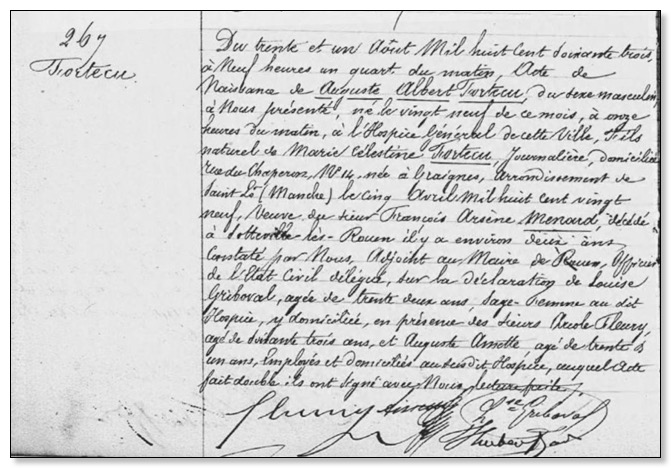 267
Tortecu.
Du trente et un Août Mil huit cent soixante trois,
à Neuf heures un quart du matin, Acte de
Naissance de Auguste Albert Tortecu, du sexe masculin,
à Nous présenté, né le vingt neuf de ce mois, à onze
heures du matin, à l'Hospice Général de cette Ville, Fils
naturel de Marie Célestine Tortecu, Journalière, domiciliée
rue du Chaperon, N° 14, née à Graignes, arrondissement de
Saint Lô (Manche) le cinq Avril Mil huit cent vingt
neuf, Veuve du sieur François Arsène Menard, décédé
à Sotteville-lès-Rouen il y a environ deux ans,
Constaté par Nous, Adjoint au Maire de Rouen, Officier
de l'Etat Civil délégué, sur la déclaration de Louise
Griboval, agée de trente deux ans, Sage-Femme au dit
Hospice, y domiciliée, en présence des sieurs Fleury,
agé de soixante trois ans, et Auguste agé de trente
un ans, Employés et domiciliés au susdit Hospice, auquel Acte
fait double ils ont signé avec Nous, lecture faite.
Fleury Griboval